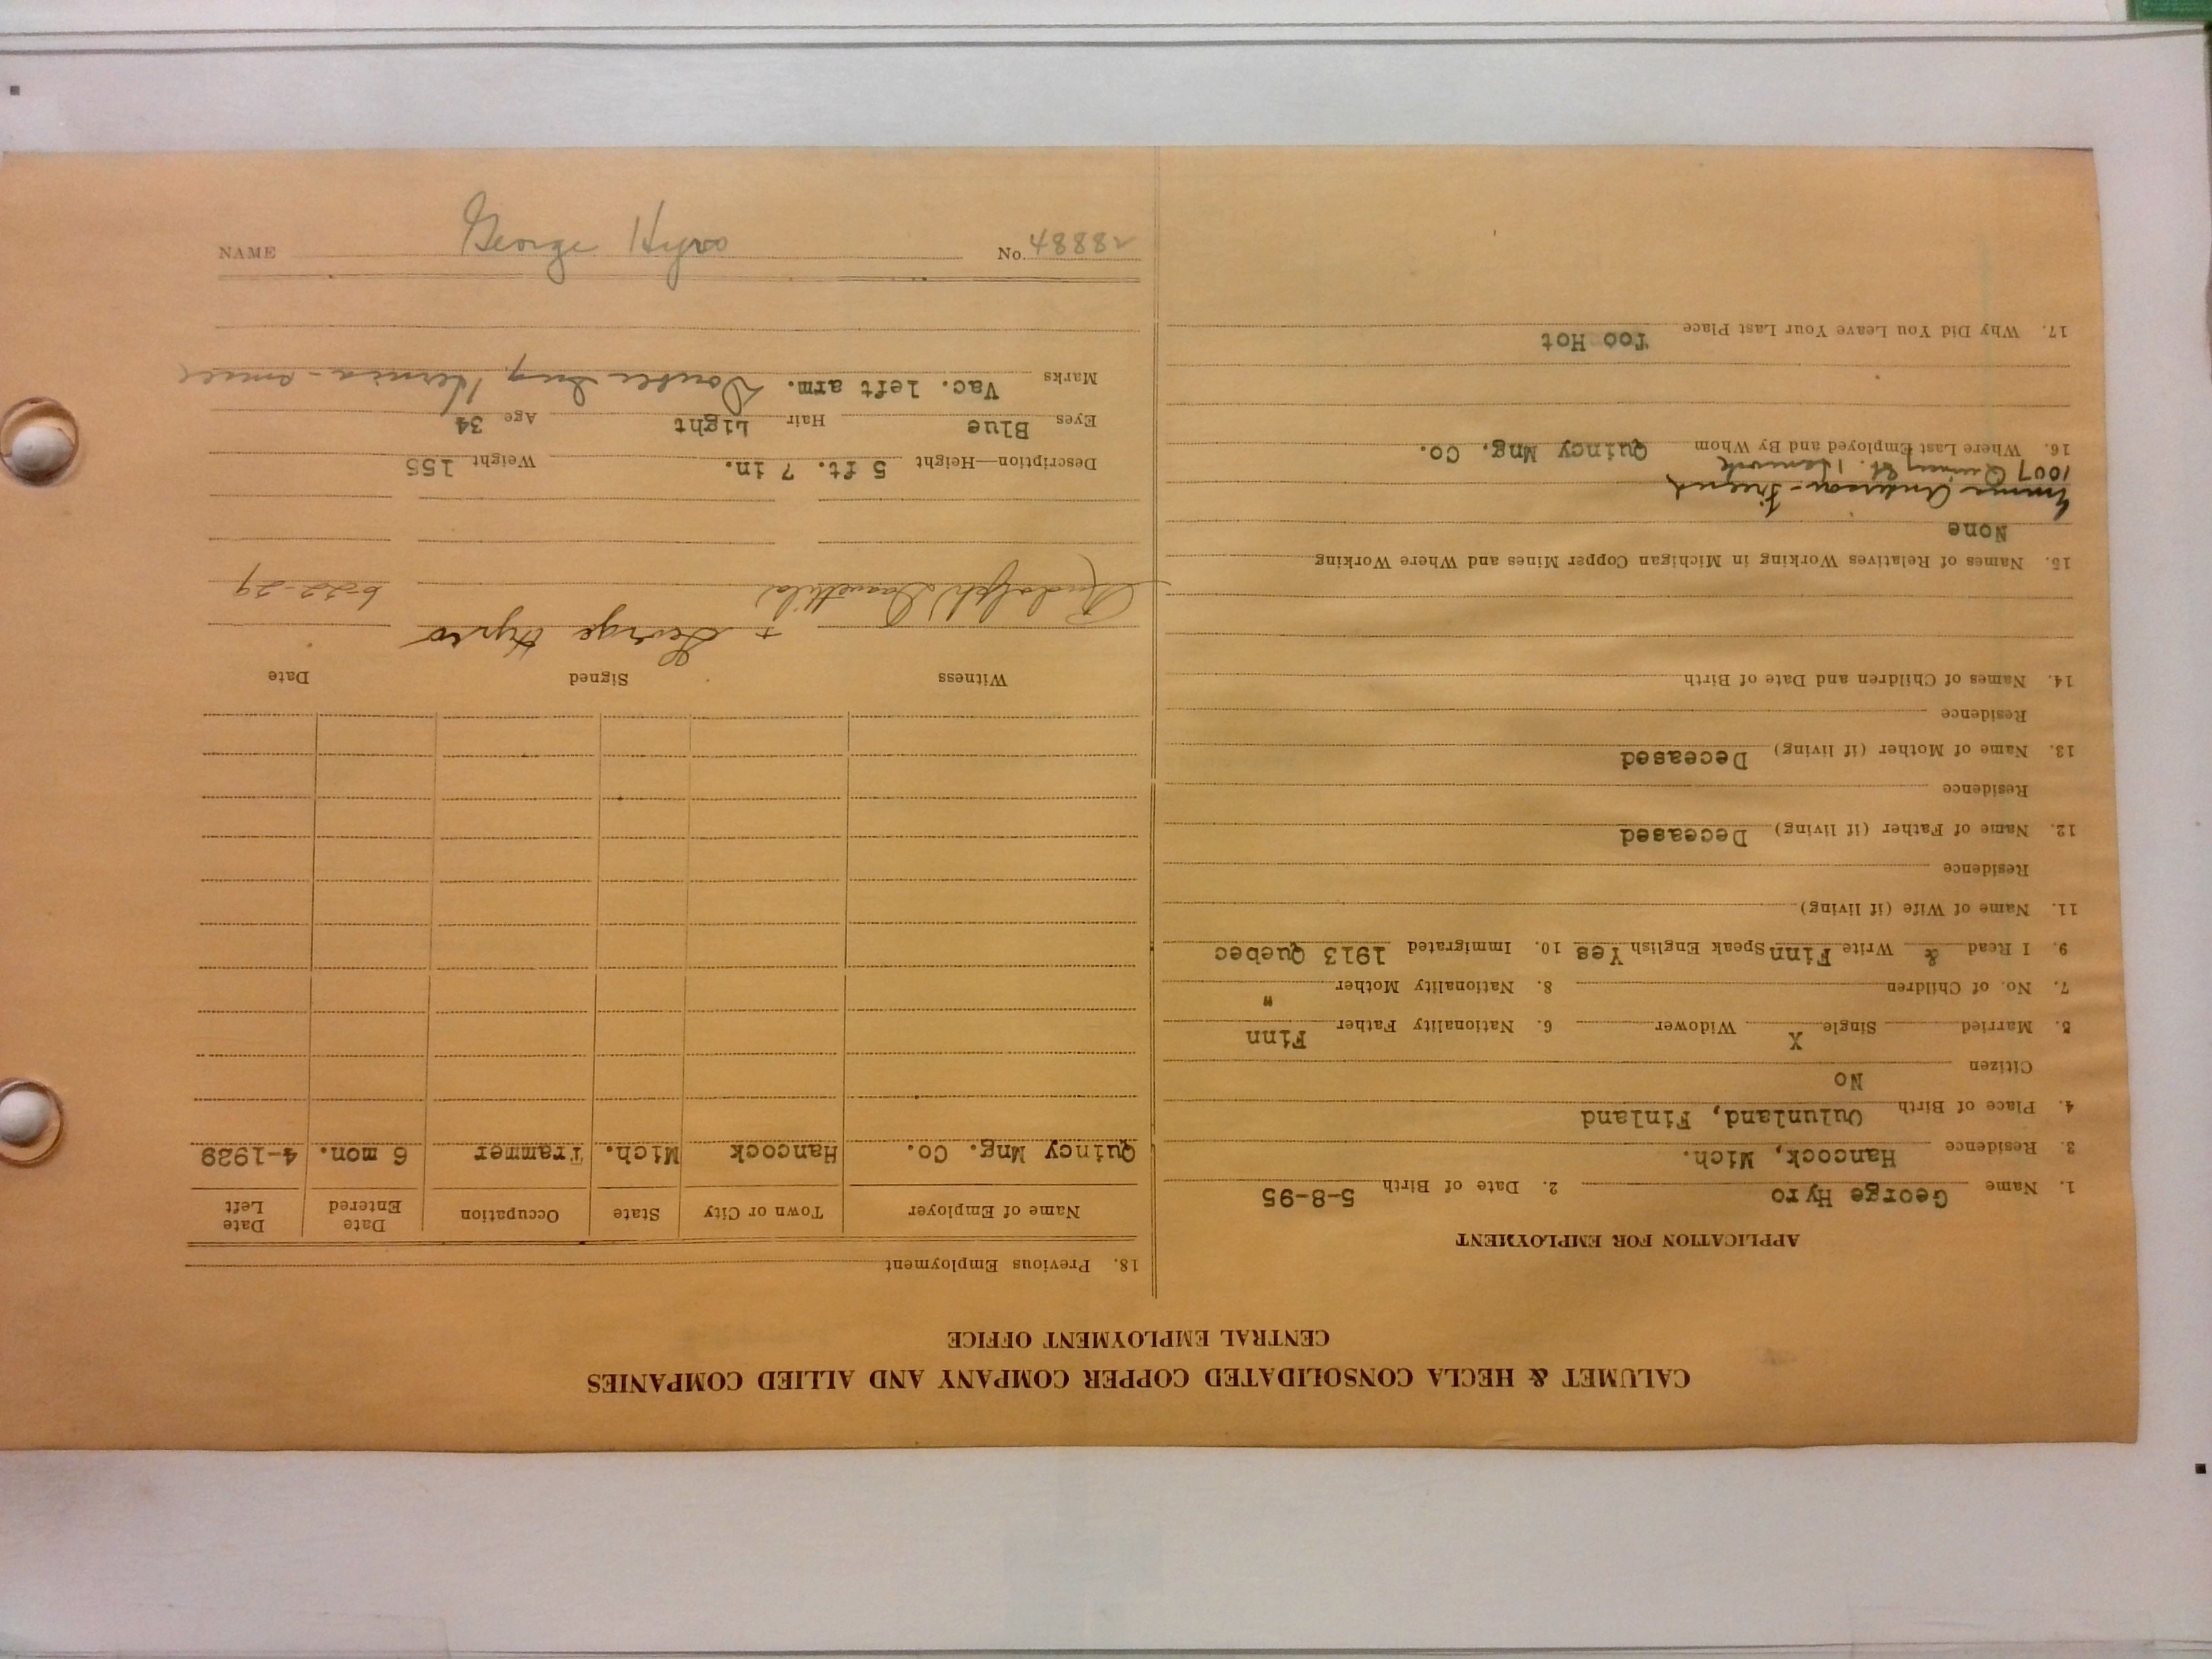 CALUMET & HECLA CONSOLIDATED COPPER COMPANY AND ALLIED COMPANIES
CENTRAL EMPLOYMENT OFFICE
APPLICATION FOR EMPLOYMENT
1. Name George Hyro 2. Date of Birth 5-8-95
3. Residence Hancock, Mich.
4. Place of Birth Oulunland, Finland
Citizen No
5. Married Single X Widower 6. Nationality Father Finn
7. No. of Children 8. Nationality Mother "
9. I Read & Write Finn Speak English Yes 10. Immigrated 1913 Quebec
11. Name of Wife (if living)
Residence
12. Name of Father (if living) Deceased
Residence
13. Name of Mother (if living) Deceased
Residence
14. Names of Children and Date of Birth
15. Names of Relatives Working in Michigan Copper Mines and Where Working
None
Emma Anderson - Friend
1007 Quincy St. Hancock
16. Where Last Employed and By Whom Quincy Mng. Co.
17. Why Did You Leave Your Last Place Too Hot
18. Previous Employment
Name of Employer Town or City State Occupation Date Entered Date Left
Quincy Mng. Co. Hancock Mich. Trammer 6 mon. 4-1929
Witness Signed Date
+ George Hyro
Rudolph 6-22-29
Description—Height 5 ft. 7 in. Weight 155
Eyes Blue Hair Light Age 34
Marks Vac. left arm. Double Ing. Hernia -
NAME George Hyro No. 48882